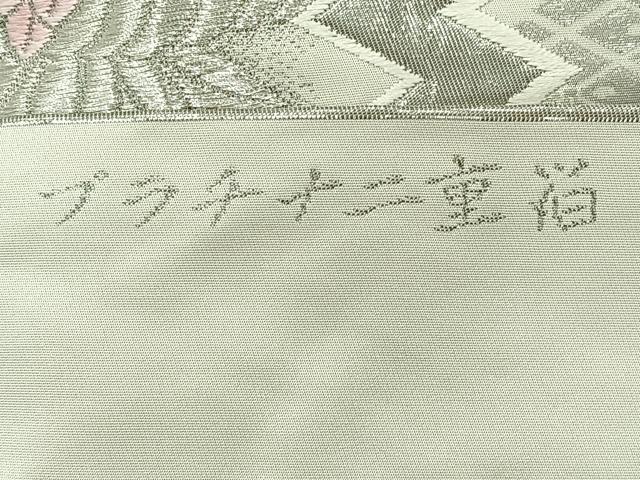 プラチナ二重箔